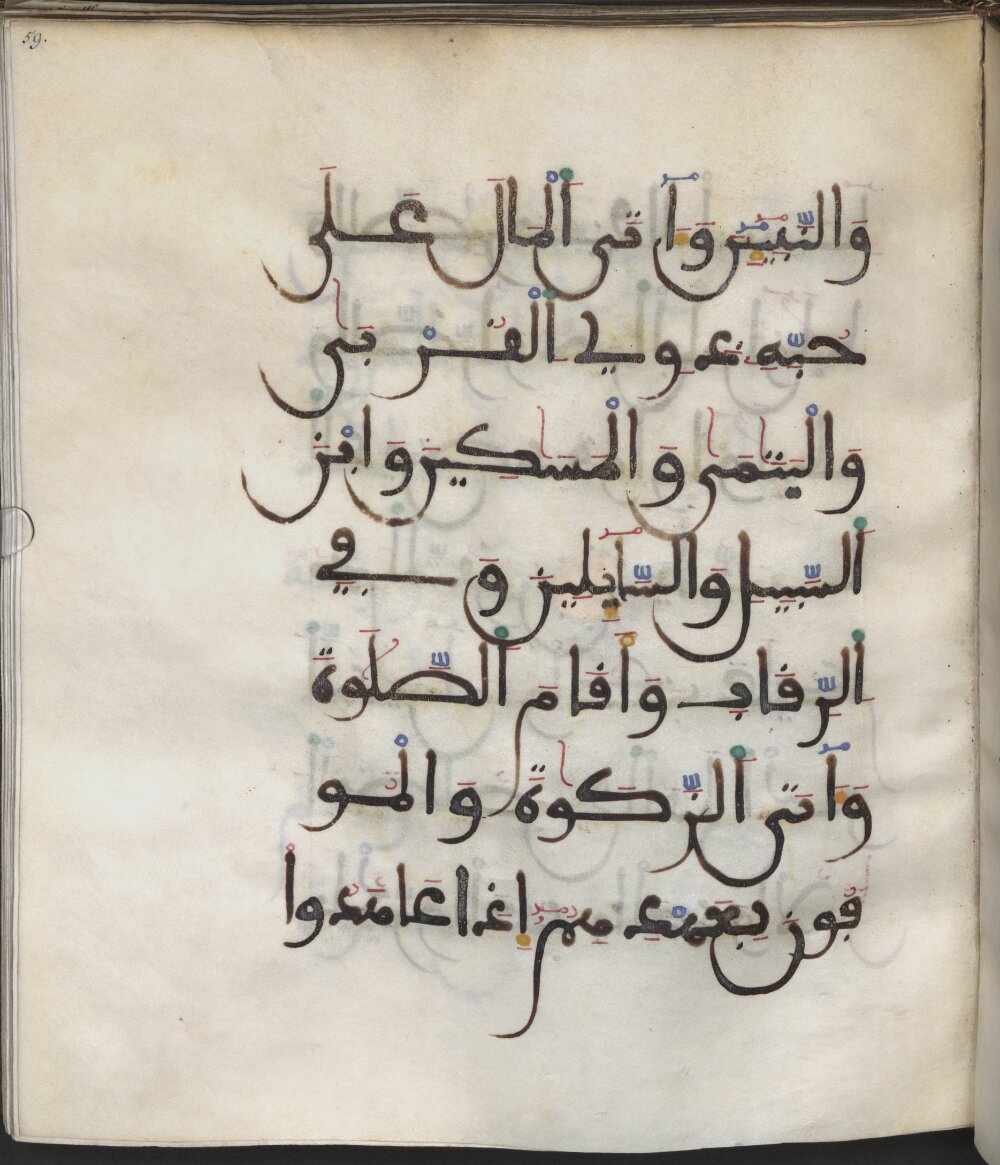 59.
وَالنَّبِيِّينَ وَءَاتَى اَلْمَالَ عَلَىٰ
حُبِّهِۦ ذَوِي اِلْقُرْبَىٰ
وَالْيَتَٰمَىٰ وَالْمَسَٰكِينَ وَابْنَ
اَلسَّبِيلِ وَالسَّآئِلِينَ وَفِي
اِلرِّقَابِ وَأَقَامَ اَلصَّلَوٰةَ
وَءَاتَى اَلزَّكَوٰةَ وَالْمُو
فُونَ بِعَهْدِهِمُۥٓ إِذَا عَٰهَدُواْ